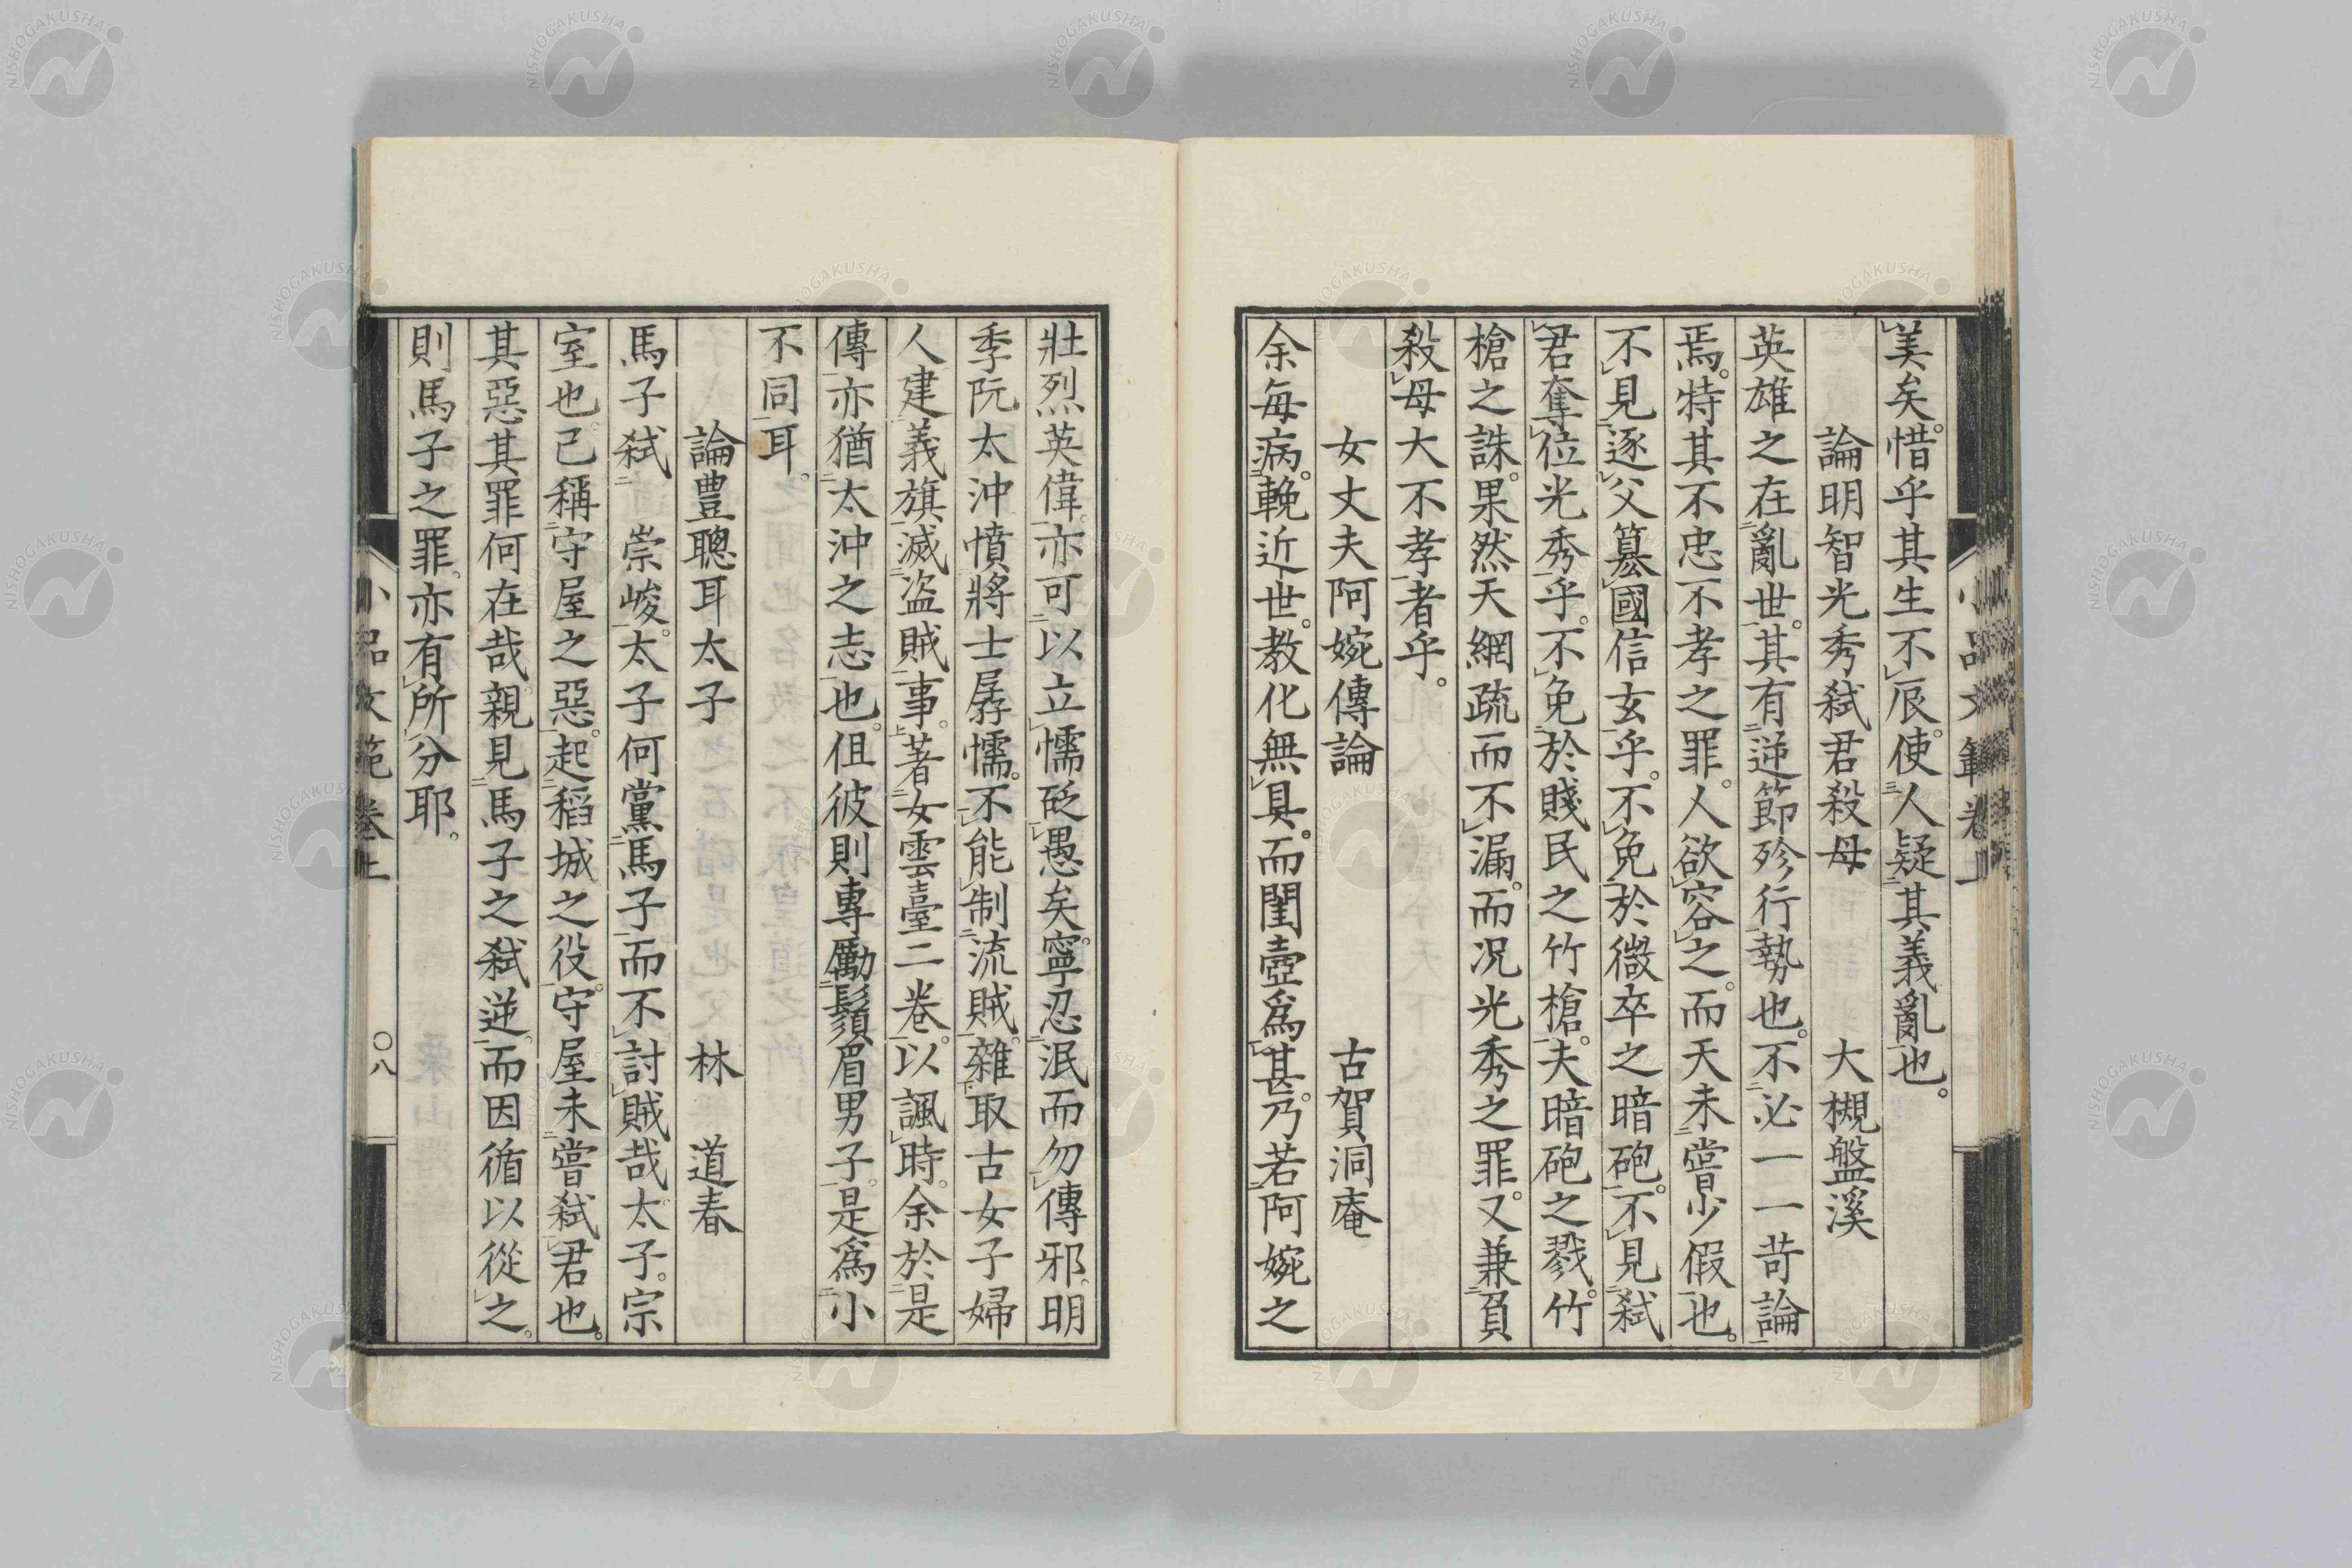 美矣。惜乎其生不辰。使人疑其義亂也。
論明智光秀弑君殺母　大槻盤溪
英雄之在亂世。其有逆節殄行勢也。不必一一苛論
焉。特其不忠不孝之罪。人欲容之。而天未嘗少假也。
不見逐父簒國信玄乎。不免於微卒之暗砲。不見弑
君奪位光秀乎。不免於賤民之竹槍。夫暗砲之戮。竹
槍之誅。果然天網疏而不漏。而況光秀之罪。又兼負
殺母大不孝者乎。
女丈夫阿婉傳論　古賀洞庵
余每病。輓近世。教化無具。而閨壼爲甚。乃若阿婉之
壯烈英偉。亦可以立懦砭愚矣。寧忍泯而勿傳邪。明
季阮太沖憤將士孱懦。不能制流賊。雜取古女子婦
人建義旗滅盜賊事。著女雲臺二卷。以諷時。余於是
傳亦猶太沖之志也。但彼則專勵鬚眉男子。是爲小
不同耳。
論豊聰耳太子　林　道春
馬子弑　崇峻。太子何黨馬子而不討賊哉。太子。宗
室也。已稱守屋之惡。起稻城之役。守屋未嘗弑君也。
其惡其罪何在哉。親見馬子之弑逆。而因循以從之。
則馬子之罪。亦有所分耶。
小品文範卷上
〇八
NISHOGAKUSHA